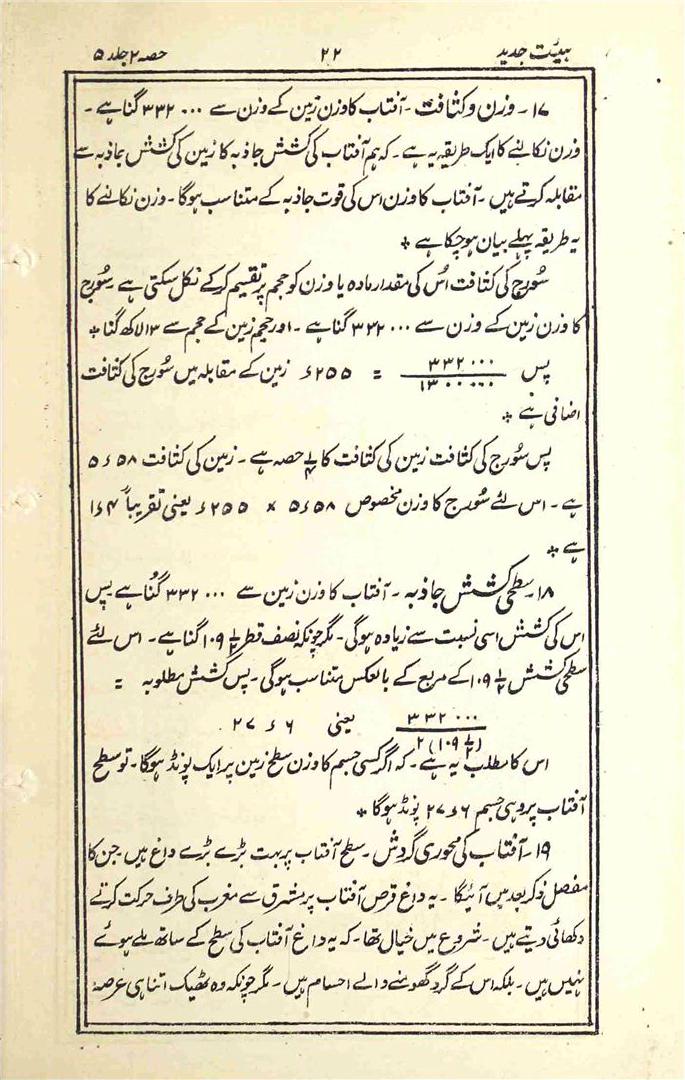 ہیئت جدید ۲۲ حصہ ۲ جلد ۵
۱۷۔ وزن و کثافت۔ آفتاب کا وزن زمین کے وزن سے ۳۳۲۰۰۰ گنا ہے۔
وزن نکالنے کا ایک طریقہ یہ ہے۔ کہ ہم آفتاب کی کشش جاذبہ کا زمین کی کشش جاذبہ سے
مقابلہ کرتے ہیں۔ آفتاب کا وزن اس کی قوت جاذبہ کے متناسب ہوگا۔ وزن نکالنے کا
یہ طریقہ پہلے بیان ہو چکا ہے *
سُورج کی کثافت اُس کی مقدار مادہ یا وزن کو حجم پر تقسیم کرکے نکل سکتی ہے سورج
کا وزن زمین کے وزن سے ۳۳۲۰۰۰ گنا ہے۔ اور حجم زمین کے حجم سے ۱۳ لاکھ گنا *
پس ۳۳۲۰۰۰ / ۱۳۰۰۰۰۰ = ۲۵۵ء زمین کے مقابلہ میں سُورج کی کثافت
اضافی ہے *
پس سُورج کی کثافت زمین کی کثافت کا ۱/۴ حصہ ہے۔ زمین کی کثافت ۵۸ء۵
ہے۔ اس لئے سُورج کا وزن مخصوص ۵۸ء۵ × ۲۵۵ء یعنی تقریباً ۴ء۱
ہے *
۱۸۔ سطحی کشش جاذبہ۔ آفتاب کا وزن زمین سے ۳۳۲۰۰۰ گُنا ہے پس
اس کی کشش اسی نسبت سے زیادہ ہوگی۔ مگر چونکہ نصف قطر ۱۰۹ ۱/۲ گنا ہے۔ اس لئے
سطحی کشش ۱۰۹ ۱/۲ کے مربع کے بالعکس متناسب ہوگی۔ پس کشش مطلوبہ =
۳۳۲۰۰۰ / (۱۰۹ ۱/۲)۲ یعنی ۶ء۲۷
اس کا مطلب یہ ہے۔ کہ اگر کسی جسم کا وزن سطح زمین پر ایک پونڈ ہوگا۔ تو سطح
آفتاب پر وہی جسم ۶ء۲۷ پونڈ ہوگا *
۱۹۔ آفتاب کی محوری گردش۔ سطح آفتاب پر بہت بڑے بڑے داغ ہیں جن کا
مفصل ذکر بعد میں آئیگا۔ یہ داغ قرص آفتاب پر مشرق سے مغرب کی طرف حرکت کرتے
دکھائی دیتے ہیں۔ شروع میں خیال تھا۔ کہ یہ داغ آفتاب کی سطح کے ساتھ ملے ہوئے
نہیں ہیں۔ بلکہ اس کے گرد گھومنے والے اجسام ہیں۔ مگر چونکہ وہ ٹھیک اتنا ہی عرصہ